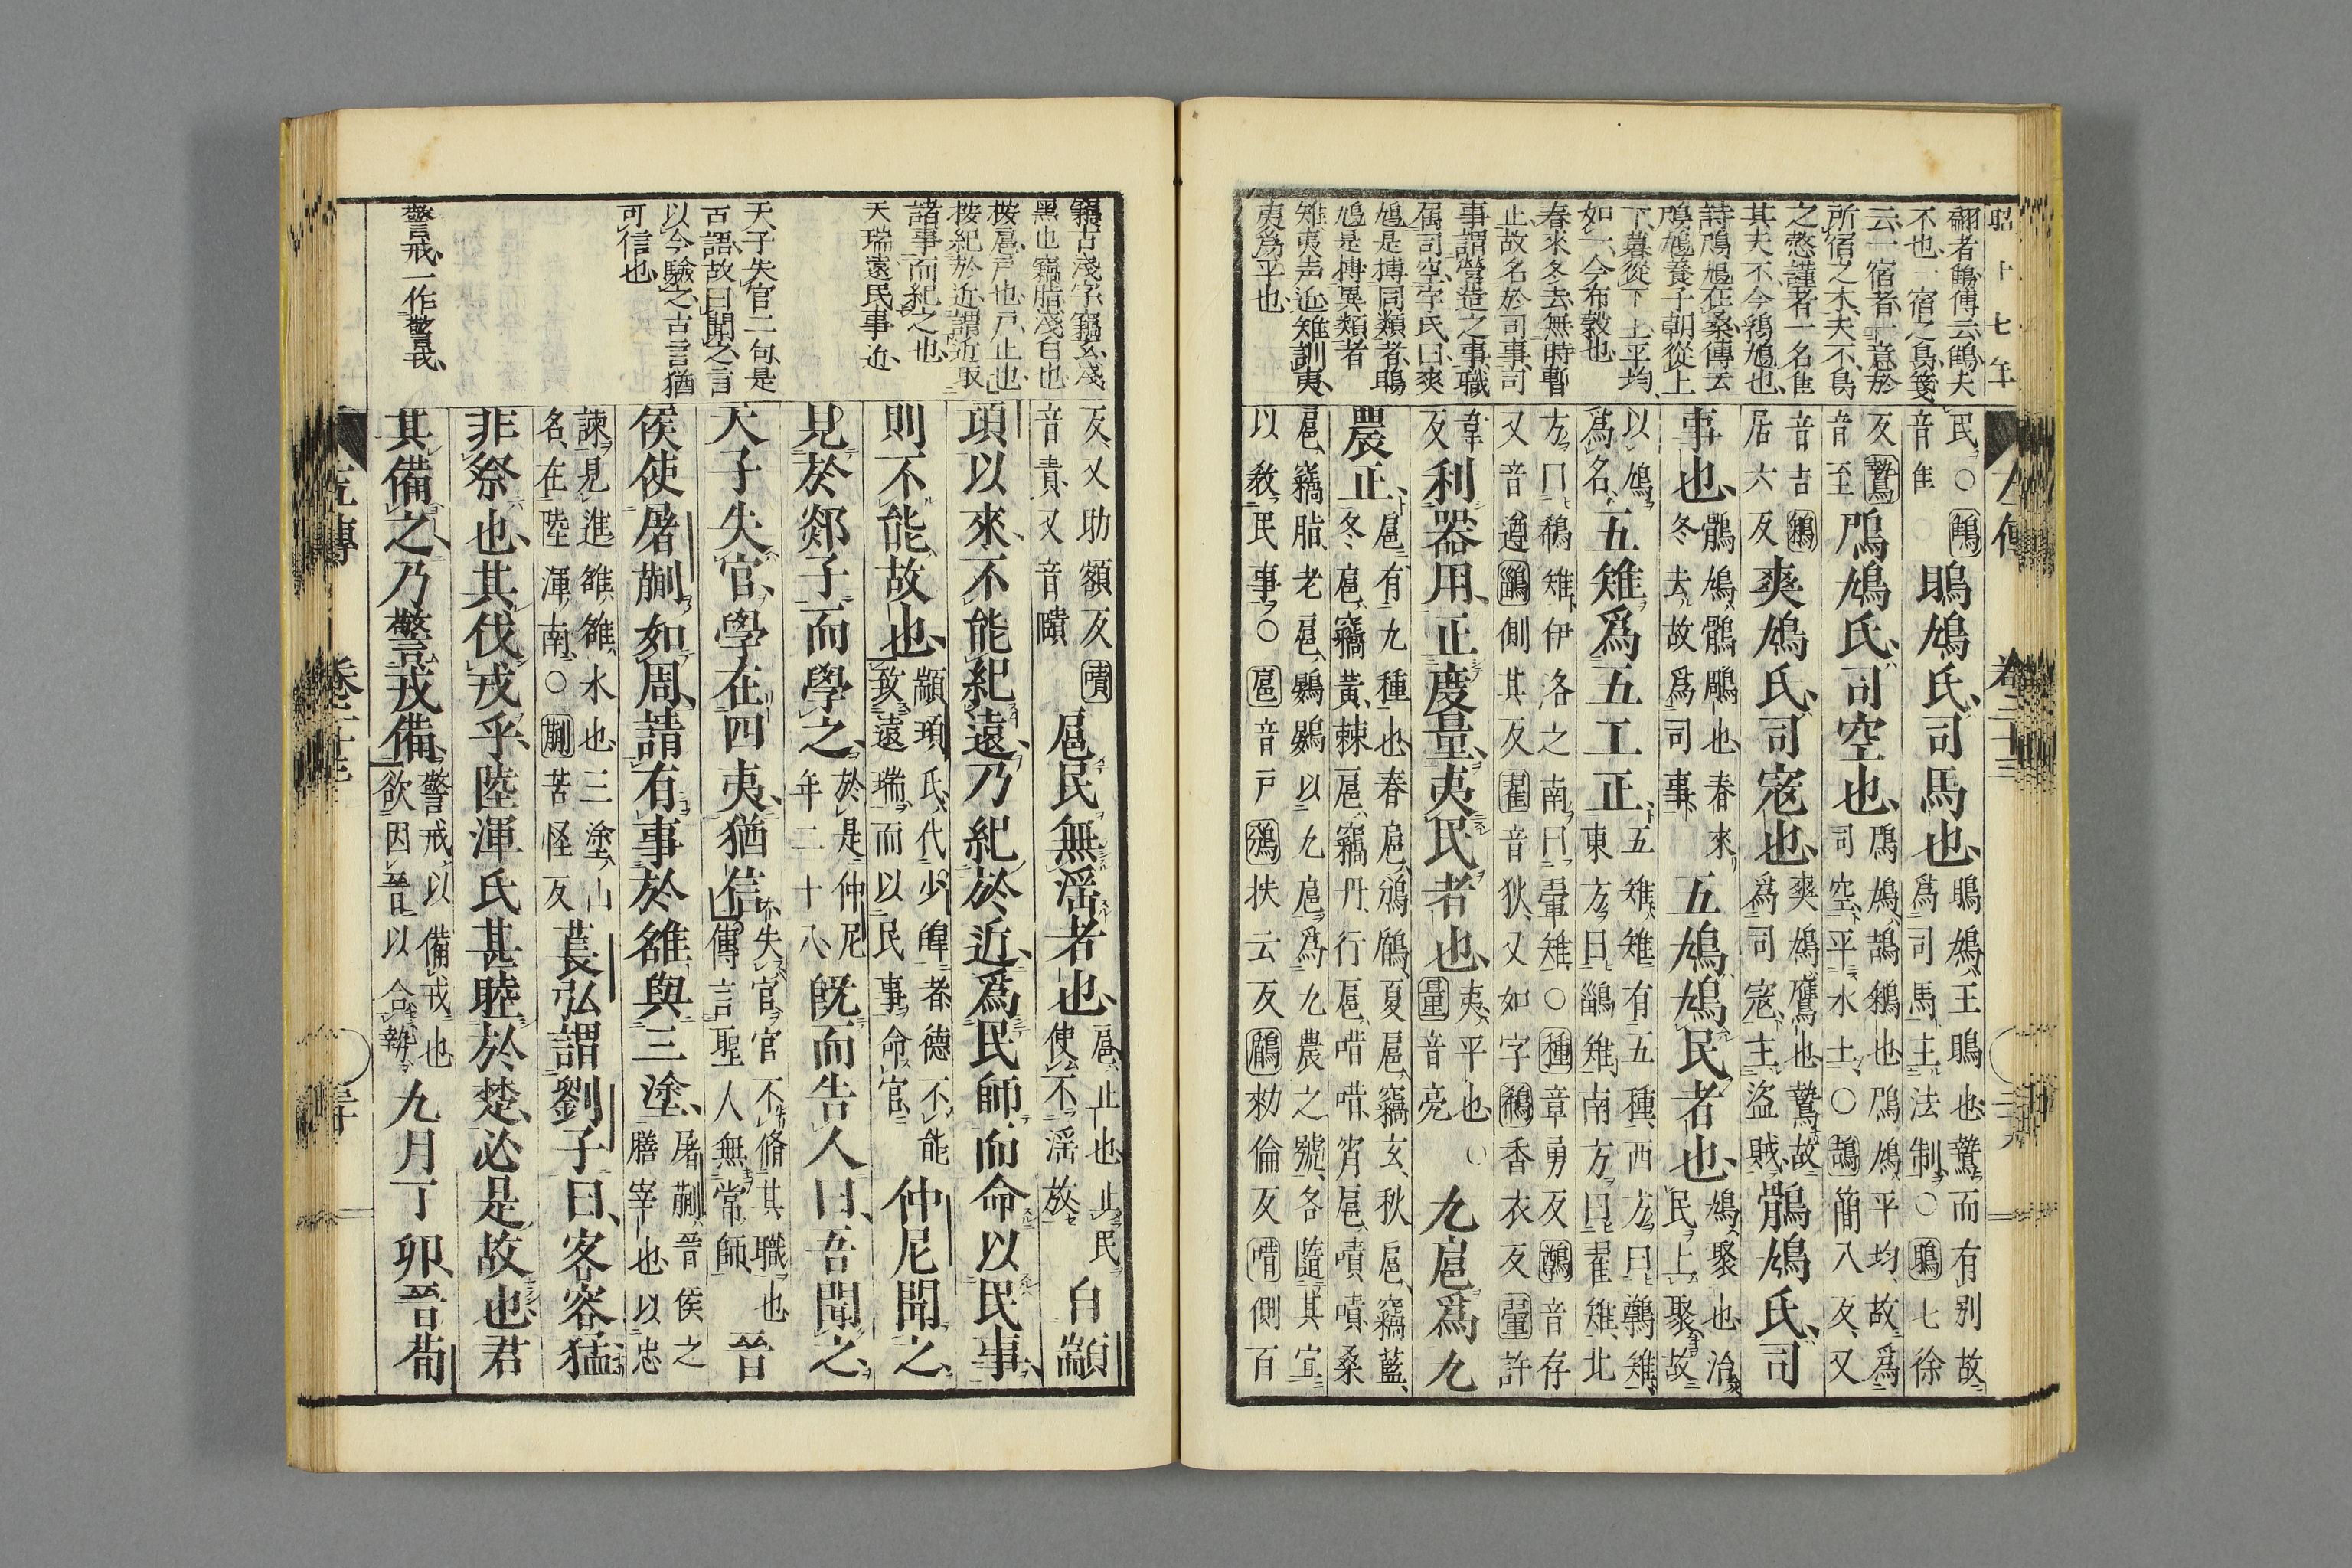 昭十七年
翩者鵻傳云鵻夫
不也一宿之鳥箋
云一宿者一意於
所宿之木夫不鳥
之愨謹者一名隹
其夫不今鵓鳩也
詩鳲鳩在桑傳云
鳲鳩養子朝從上
下暮從下上平均
如一今布穀也
春來冬去無時暫
止故名於司事司
事謂營造之事職
属司空字氏曰爽
鳩是摶同類者鴡
鳩是摶異類者
雉夷声近雉訓夷
夷爲平也
左傳 卷二十三
民○鵻音隹 鴡鳩氏司馬也 鴡鳩王鴡也鷙而有別故爲司馬主法制○鴡七徐
反鷙音至 鳲鳩氏司空也 鳲鳩鴶鵴也鳲鳩平均故爲司空平水土○鴶簡八反又
音吉鵴居六反 爽鳩氏司寇也 爽鳩鷹也鷙故爲司寇主盗賊 鶻鳩氏司
事也 鶻鳩鶻鵰也春來冬去故爲司事 五鳩鳩民者也 鳩聚也治民上聚故
以鳩爲名 五雉爲五工正 五雉雉有五種西方曰鷷雉東方曰鶅雉南方曰翟雉北
方曰鵗雉伊洛之南曰翬雉○種章勇反鷷音存又音遵鶅側其反翟音狄又如字鵗香衣反翬許
韋反 利器用正度量夷民者也 夷平也○量音亮 九扈爲九
農正 扈有九種也春扈鳻鶞夏扈竊玄秋扈竊藍冬扈竊黄棘扈竊丹行扈唶唶宵扈嘖嘖桑
扈竊脂老扈鷃鷃以九扈爲九農之號各隨其宜以教民事○扈音戸鳻扶云反鶞勑倫反唶側百
竊古淺字竊玄淺
黑也竊脂淺白也
按扈戸也戸止也
按紀於近謂近取
諸事而紀之也
天瑞遠民事近
天子失官二句是
古語故曰聞之言
以今驗之古言猶
可信也
警戒一作警戎
反又助額反嘖音責又音賾 扈民無淫者也 扈止也止民使不淫放 自顓
頊以來不能紀遠乃紀於近爲民師而命以民事
則不能故也 顓頊氏代少皥者德不能致遠瑞而以民事命官 仲尼聞之
見於郯子而學之 於是仲尼年二十八 旣而告人曰吾聞之
天子失官學在四夷猶信 失官官不脩其職也傳言聖人無常師 晉
侯使屠蒯如周請有事於雒與三塗 屠蒯晉侯之膳宰也以忠
諫見進雒雒水也三塗山名在陸渾南○蒯苦怪反 萇弘謂劉子曰客容猛
非祭也其伐戎乎陸渾氏甚睦於楚必是故也君
其備之乃警戎備 警戒以備戎也欲因晉以合勢 九月丁卯晉荀
左傳 卷二十三 三十